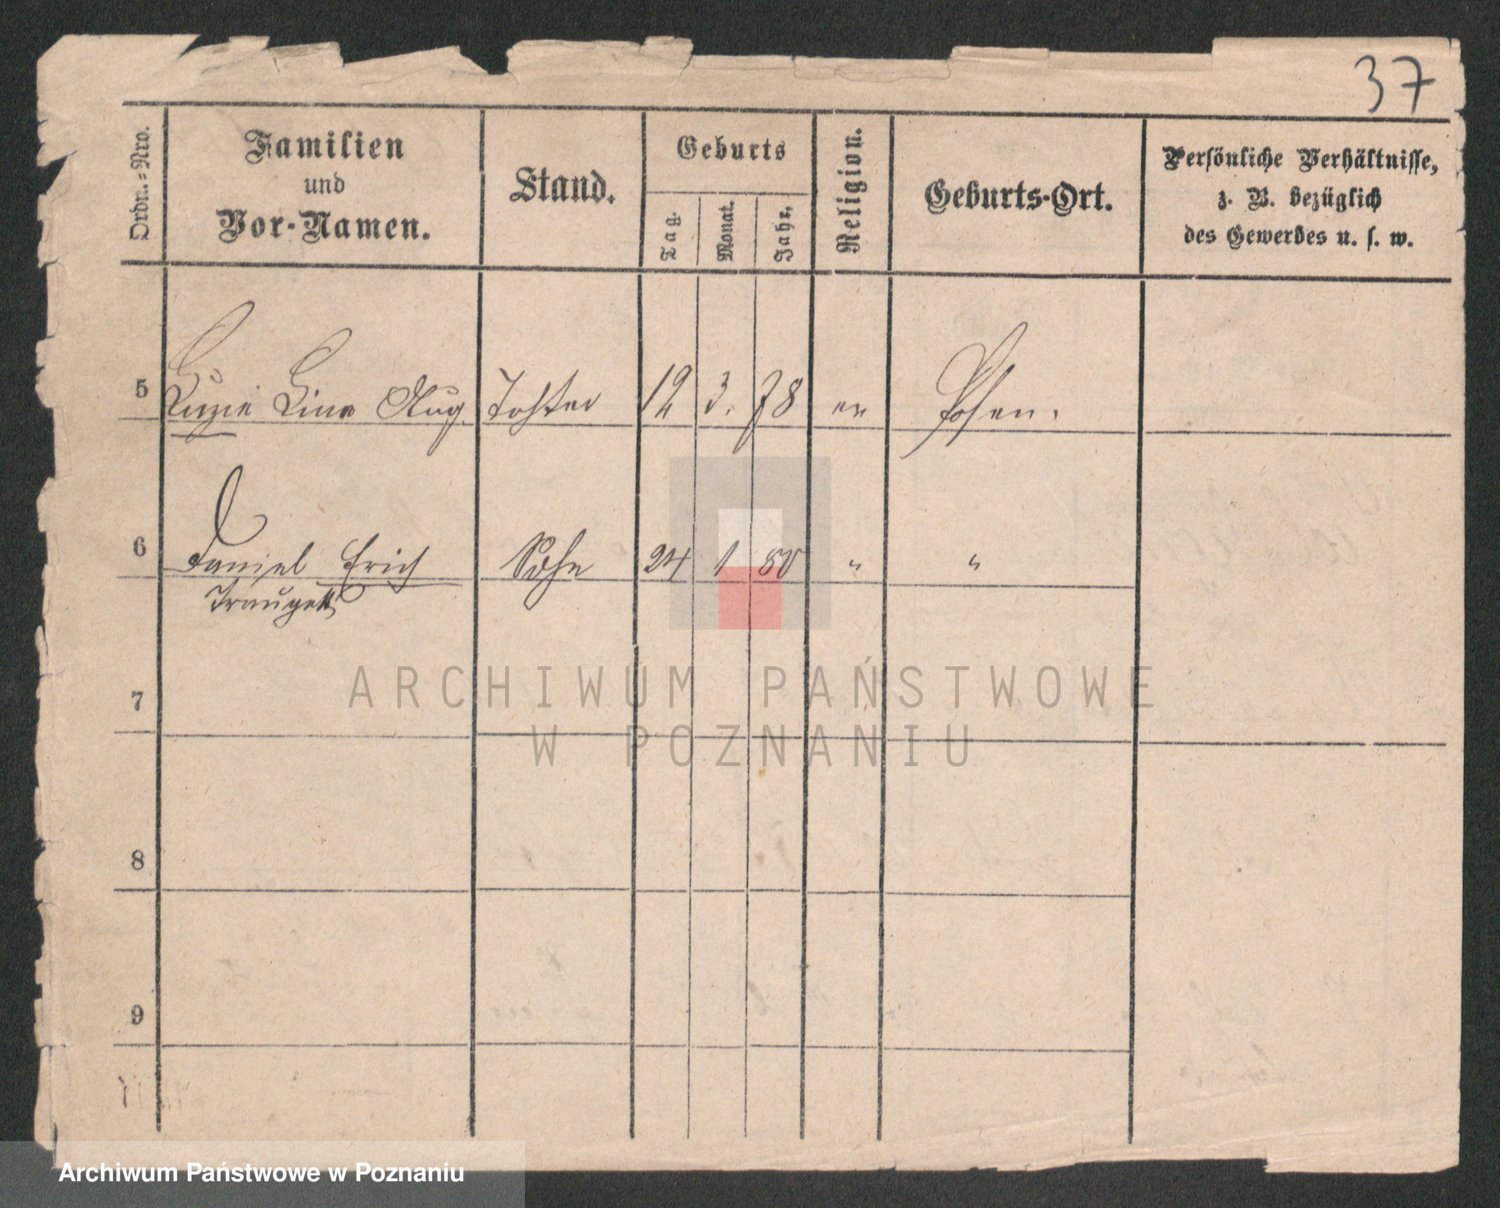 37
Ordn.-Nro.
Familien
und
Vor-Namen.
Stand.
Geburts
Tag.
Monat.
Jahr.
Religion.
Geburts-Ort.
Persönliche Verhältnisse,
z. B. bezüglich
des Gewerbes u. s. w.
5 Luzie Lina Aug. Tochter 12 3. 78 ev Posen.
6 Daniel Erich Sohn 24 1 80 " "
Traugott
7
8
9
ARCHIWUM PAŃSTWOWE
W POZNANIU
Archiwum Państwowe w Poznaniu